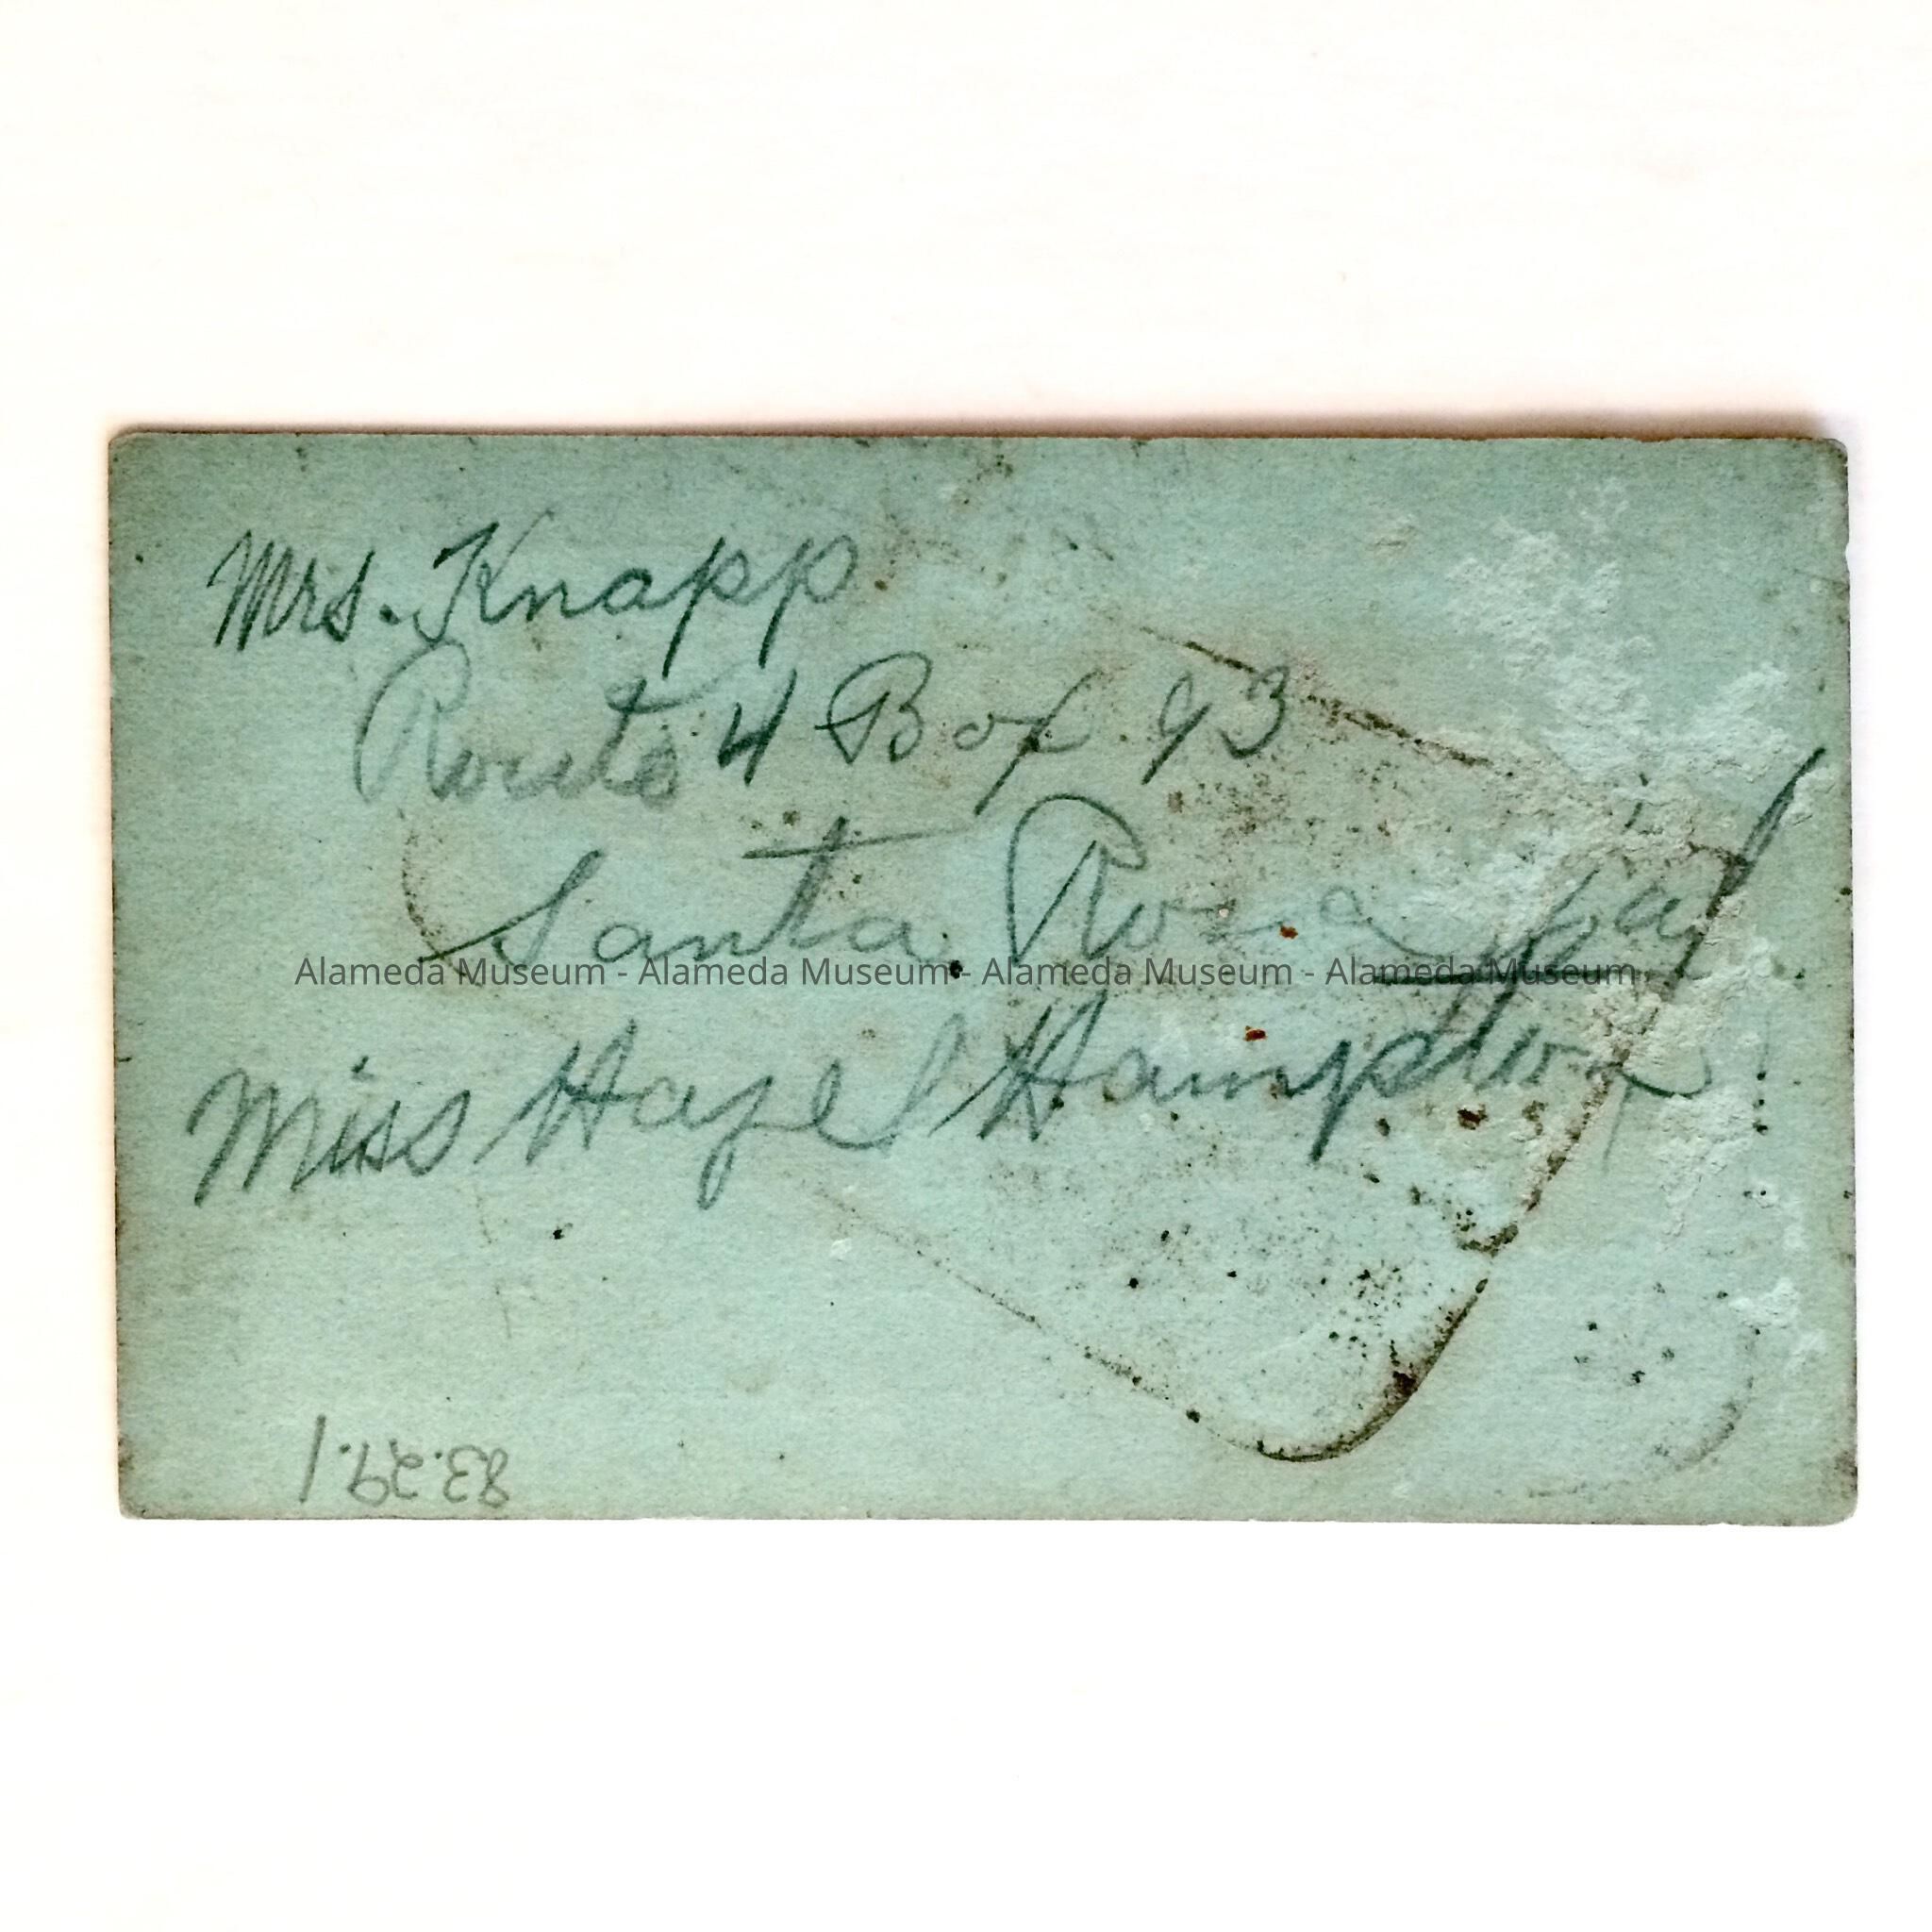 Mrs. Knapp
Route 4 Box 93
Santa Rosa Cal
Alameda Museum - Alameda Museum - Alameda Museum - Alameda Museum
Miss Hazel Hampton
83.29.1